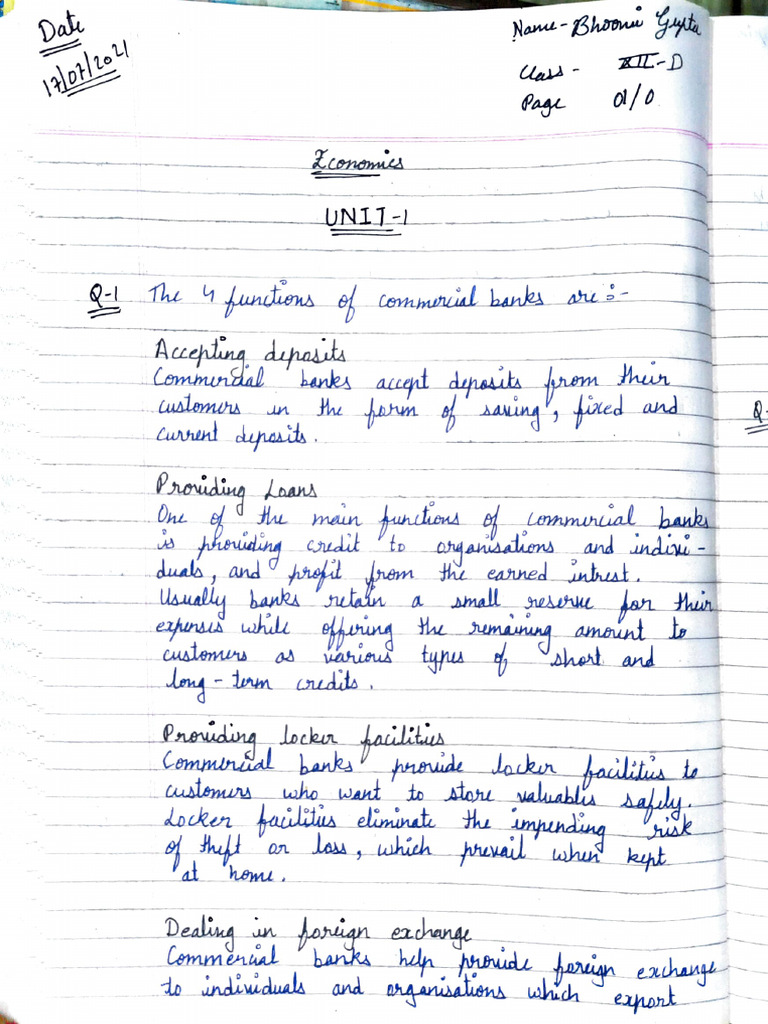 Date
17/07/2021
Name - Bhoomi Gupta
Class - XII-D
Page 01/0
Economics
UNIT-1
Q-1 The 4 functions of commercial banks are :-
Accepting deposits
Commercial banks accept deposits from their
customers in the form of saving, fixed and
current deposits.
Providing Loans
One of the main functions of commercial banks
is providing credit to organisations and indivi-
duals, and profit from the earned intrest.
Usually banks retain a small reserve for their
expenses while offering the remaining amount to
customers as various types of short and
long-term credits.
Providing locker facilities
Commercial banks provide locker facilities to
customers who want to store valuables safely.
Locker facilities eliminate the impending risk
of theft or loss, which prevail when kept
at home.
Dealing in foreign exchange
Commercial banks help provide foreign exchange
to individuals and organisations which export
Q-